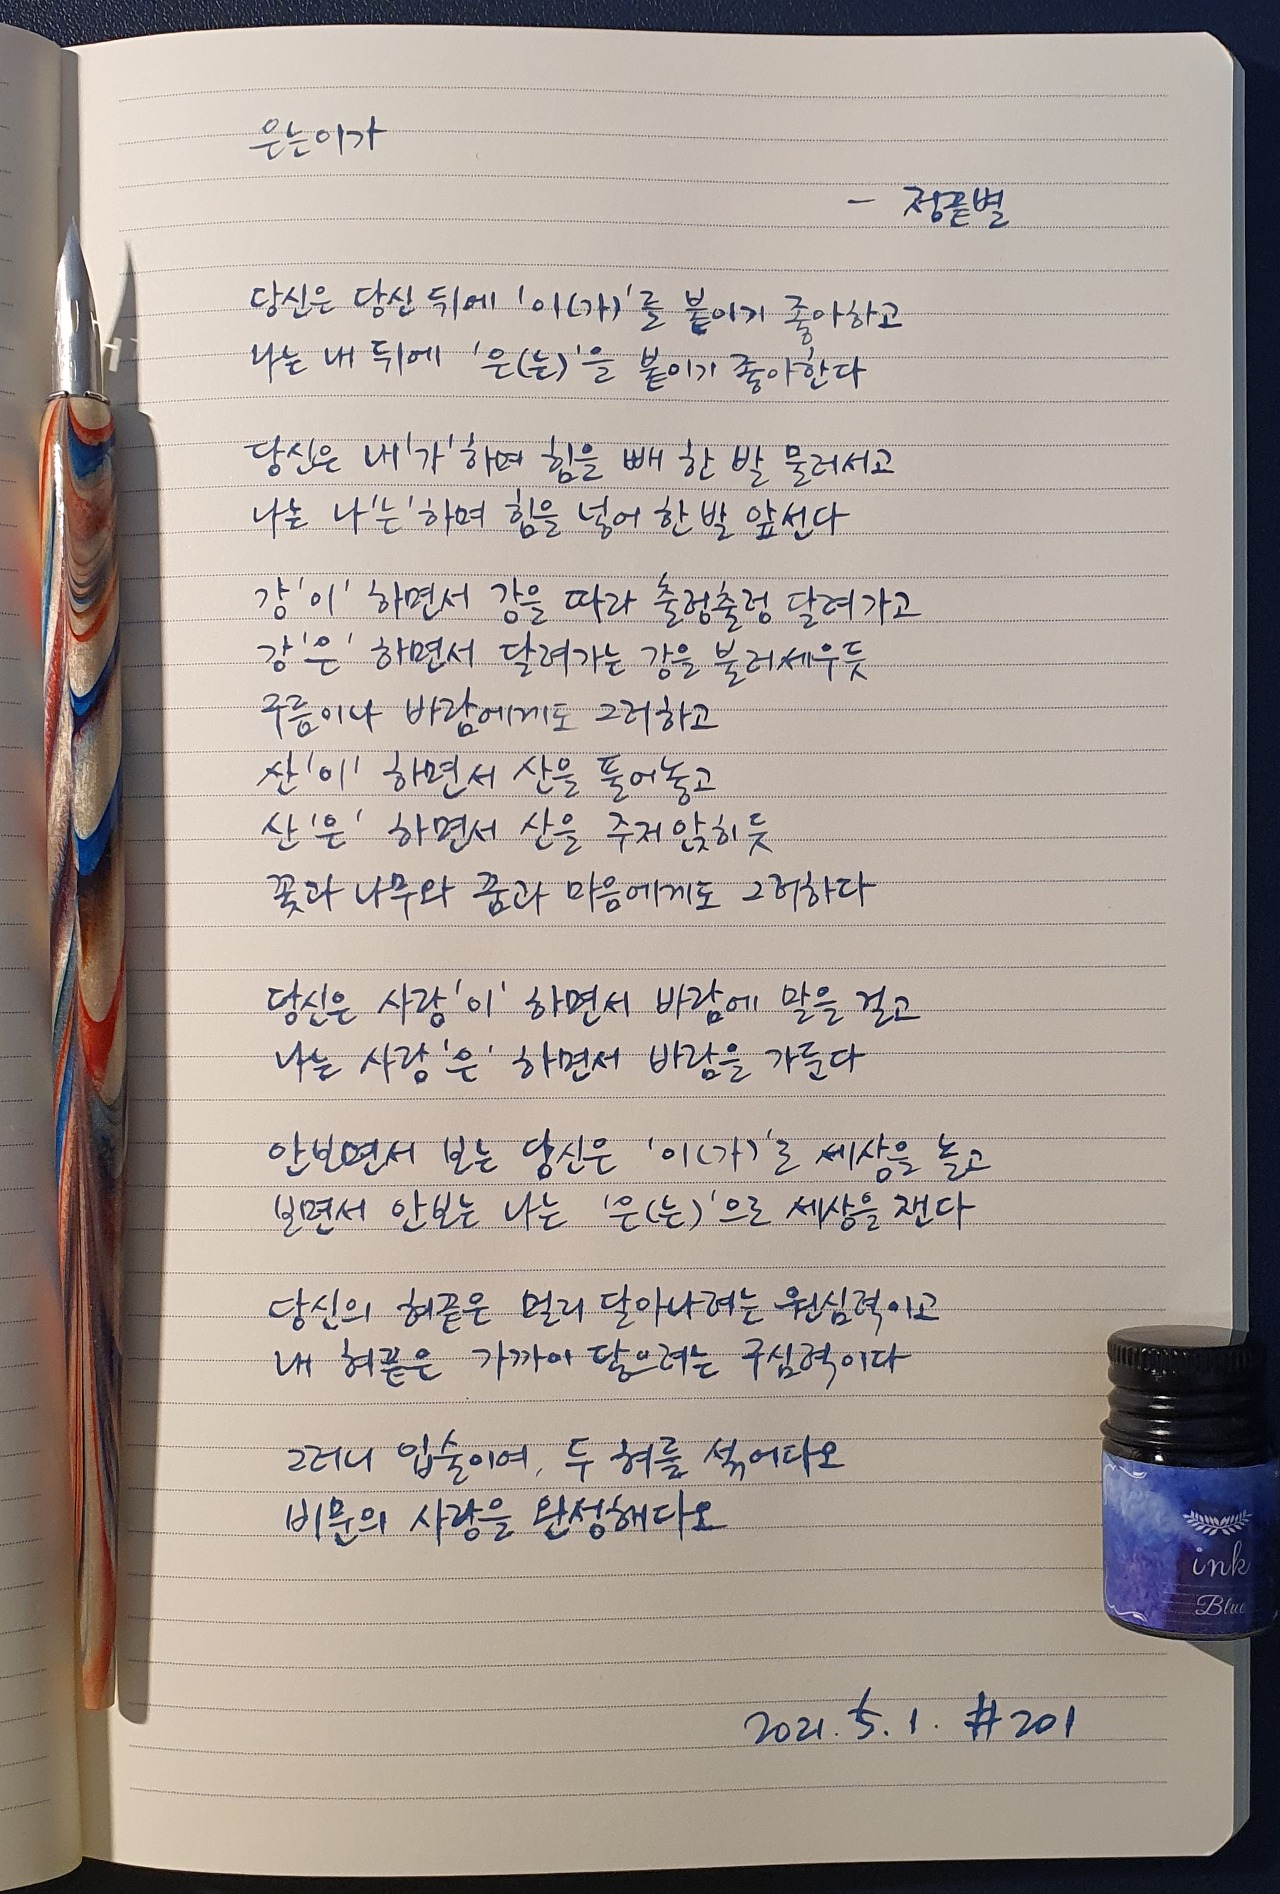 은는이가
- 정끝별
당신은 당신 뒤에 '이(가)'를 붙이기 좋아하고
나는 내 뒤에 '은(는)'을 붙이기 좋아한다
당신은 내'가'하며 힘을 빼 한 발 물러서고
나는 나'는'하며 힘을 넣어 한 발 앞선다
강'이' 하면서 강을 따라 출렁출렁 달려가고
강'은' 하면서 달려가는 강을 불러세우듯
구름이나 바람에게도 그러하고
산'이' 하면서 산을 풀어놓고
산'은' 하면서 산을 주저앉히듯
꽃과 나무와 꿈과 마음에게도 그러하다
당신은 사랑'이' 하면서 바람에 말을 걸고
나는 사랑'은' 하면서 바람을 가둔다
안보면서 보는 당신은 '이(가)'로 세상을 놀고
보면서 안보는 나는 '은(는)'으로 세상을 잰다
당신의 혀끝은 멀리 달아나려는 원심력이고
내 혀끝은 가까이 닿으려는 구심력이다
그러니 입술이여, 두 혀를 섞어다오
비문의 사랑을 완성해다오
ink
Blue
2021. 5. 1. #201